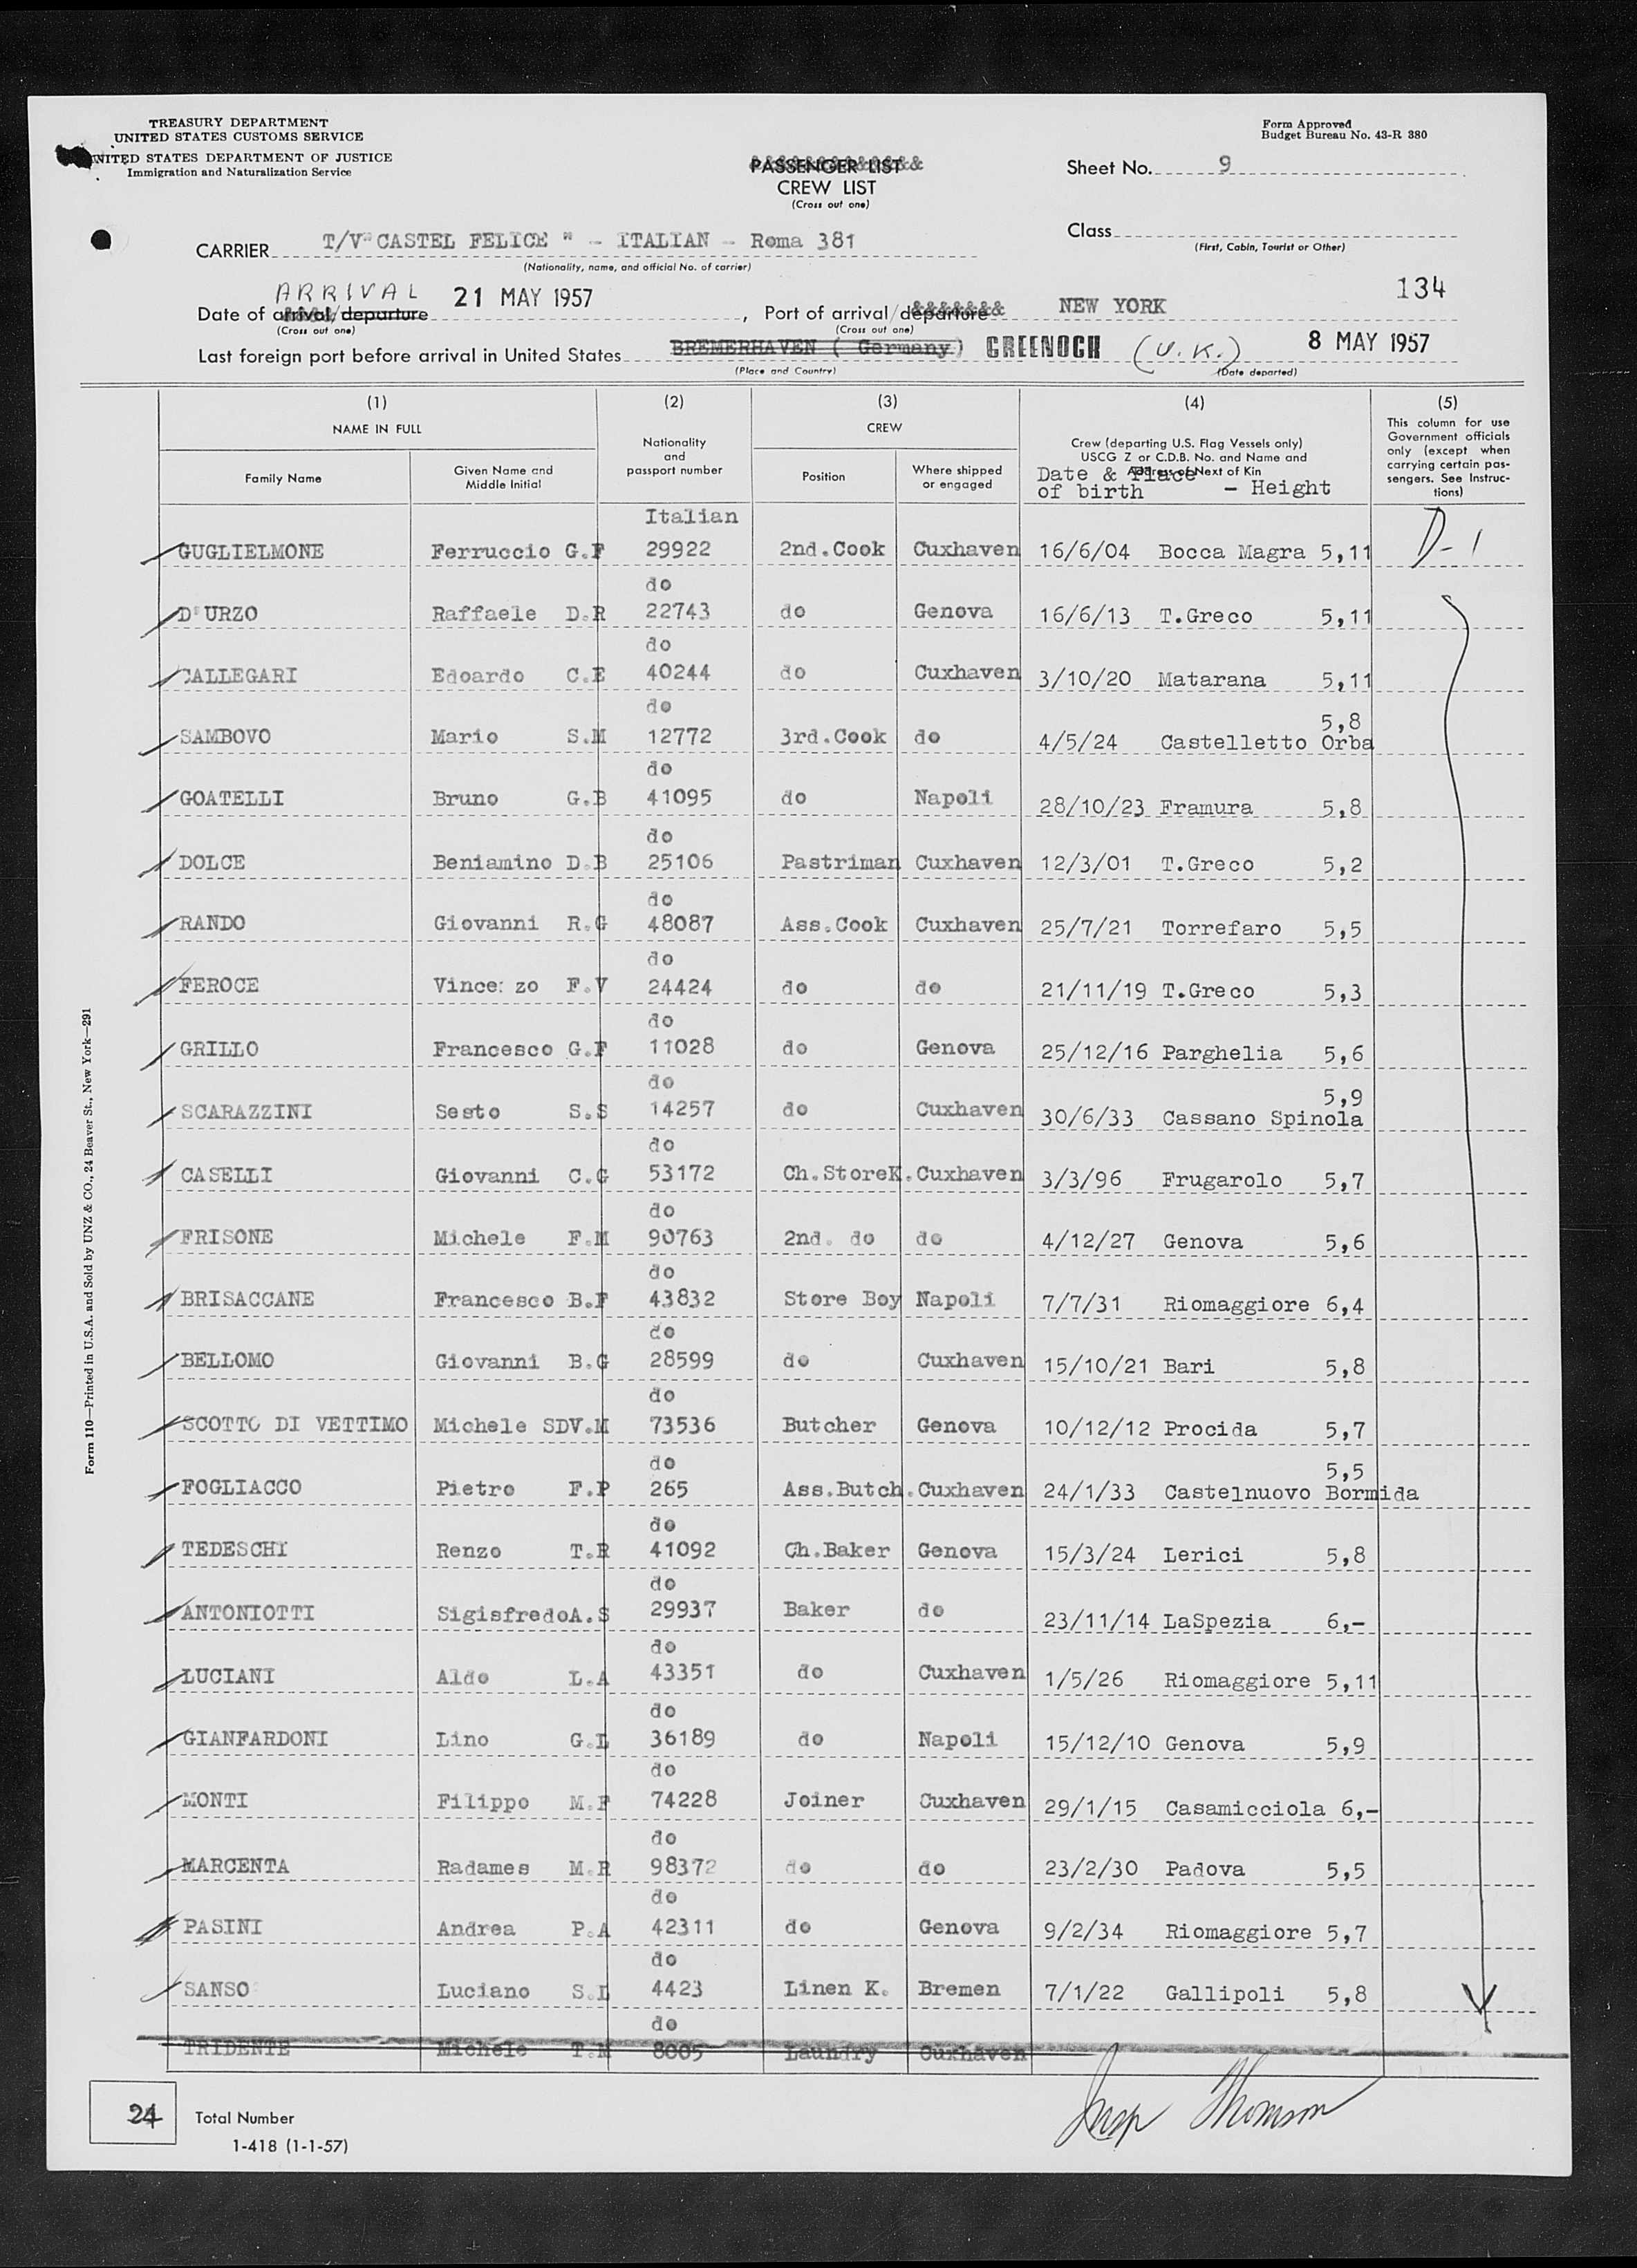 TREASURY DEPARTMENT
UNITED STATES CUSTOMS SERVICE
UNITED STATES DEPARTMENT OF JUSTICE
Immigration and Naturalization Service
Form Approved
Budget Bureau No. 43-R 380
PASSENGER LIST
CREW LIST
(Cross out one)
Sheet No. 9
Class
(First, Cabin, Tourist or Other)
CARRIER T/V"CASTEL FELICE " - ITALIAN - Roma 381
(Nationality, name, and official No. of carrier)
134
ARRIVAL
Date of arrival/departure 21 MAY 1957, Port of arrival/departure NEW YORK
(Cross out one) (Cross out one)
Last foreign port before arrival in United States BREMERHAVEN ( Germany ) GREENOCK (U.K.) 8 MAY 1957
(Place and Country) (Date departed)
(1) (2) (3) (4) (5)
NAME IN FULL
Family Name
Given Name and Middle Initial
Nationality and passport number
CREW
Position
Where shipped or engaged
Crew (departing U.S. Flag Vessels only)
USCG Z or C.D.B. No. and Name and
Address of Next of Kin
Date & Place of birth - Height
This column for use Government officials only (except when carrying certain passengers. See Instructions)
Italian
GUGLIELMONE Ferruccio G.F 29922 2nd.Cook Cuxhaven 16/6/04 Bocca Magra 5,11 D-1
do
D'URZO Raffaele D.R 22743 do Genova 16/6/13 T.Greco 5,11
do
CALLEGARI Edoardo C.E 40244 do Cuxhaven 3/10/20 Matarana 5,11
do
SAMBOVO Mario S.M 12772 3rd.Cook do 4/5/24 Castelletto Orba 5,8
do
GOATELLI Bruno G.B 41095 do Napoli 28/10/23 Framura 5,8
do
DOLCE Beniamino D.B 25106 Pastriman Cuxhaven 12/3/01 T.Greco 5,2
do
RANDO Giovanni R.G 48087 Ass.Cook Cuxhaven 25/7/21 Torrefaro 5,5
do
FEROCE Vince: zo F.V 24424 do do 21/11/19 T.Greco 5,3
do
GRILLO Francesco G.F 11028 do Genova 25/12/16 Parghelia 5,6
do
SCARAZZINI Sesto S.S 14257 do Cuxhaven 30/6/33 Cassano Spinola 5,9
do
CASELLI Giovanni C.G 53172 Ch.StoreK. Cuxhaven 3/3/96 Frugarolo 5,7
do
FRISONE Michele F.M 90763 2nd. do do 4/12/27 Genova 5,6
do
BRISACCANE Francesco B.F 43832 Store Boy Napoli 7/7/31 Riomaggiore 6,4
do
BELLOMO Giovanni B.G 28599 do Cuxhaven 15/10/21 Bari 5,8
do
SCOTTO DI VETTIMO Michele SDV.M 73536 Butcher Genova 10/12/12 Procida 5,7
do
FOGLIACCO Pietro F.P 265 Ass.Butch. Cuxhaven 24/1/33 Castelnuovo Bormida 5,5
do
TEDESCHI Renzo T.R 41092 Ch.Baker Genova 15/3/24 Lerici 5,8
do
ANTONIOTTI Sigisfredo A.S 29937 Baker do 23/11/14 LaSpezia 6,-
do
LUCIANI Aldo L.A 43351 do Cuxhaven 1/5/26 Riomaggiore 5,11
do
GIANFARDONI Lino G.L 36189 do Napoli 15/12/10 Genova 5,9
do
MONTI Filippo M.F 74228 Joiner Cuxhaven 29/1/15 Casamicciola 6,-
do
MARCENTA Radames M.R 98372 do do 23/2/30 Padova 5,5
do
PASINI Andrea P.A 42311 do Genova 9/2/34 Riomaggiore 5,7
do
SANSO Luciano S.L 4423 Linen K. Bremen 7/1/22 Gallipoli 5,8
do
TRIDENTE Michele T.M 8005 Laundry Cuxhaven
24 Total Number
1-418 (1-1-57)
Insp Thomson
Form 110—Printed in U.S.A. and Sold by UNZ & CO., 24 Beaver St., New York—291